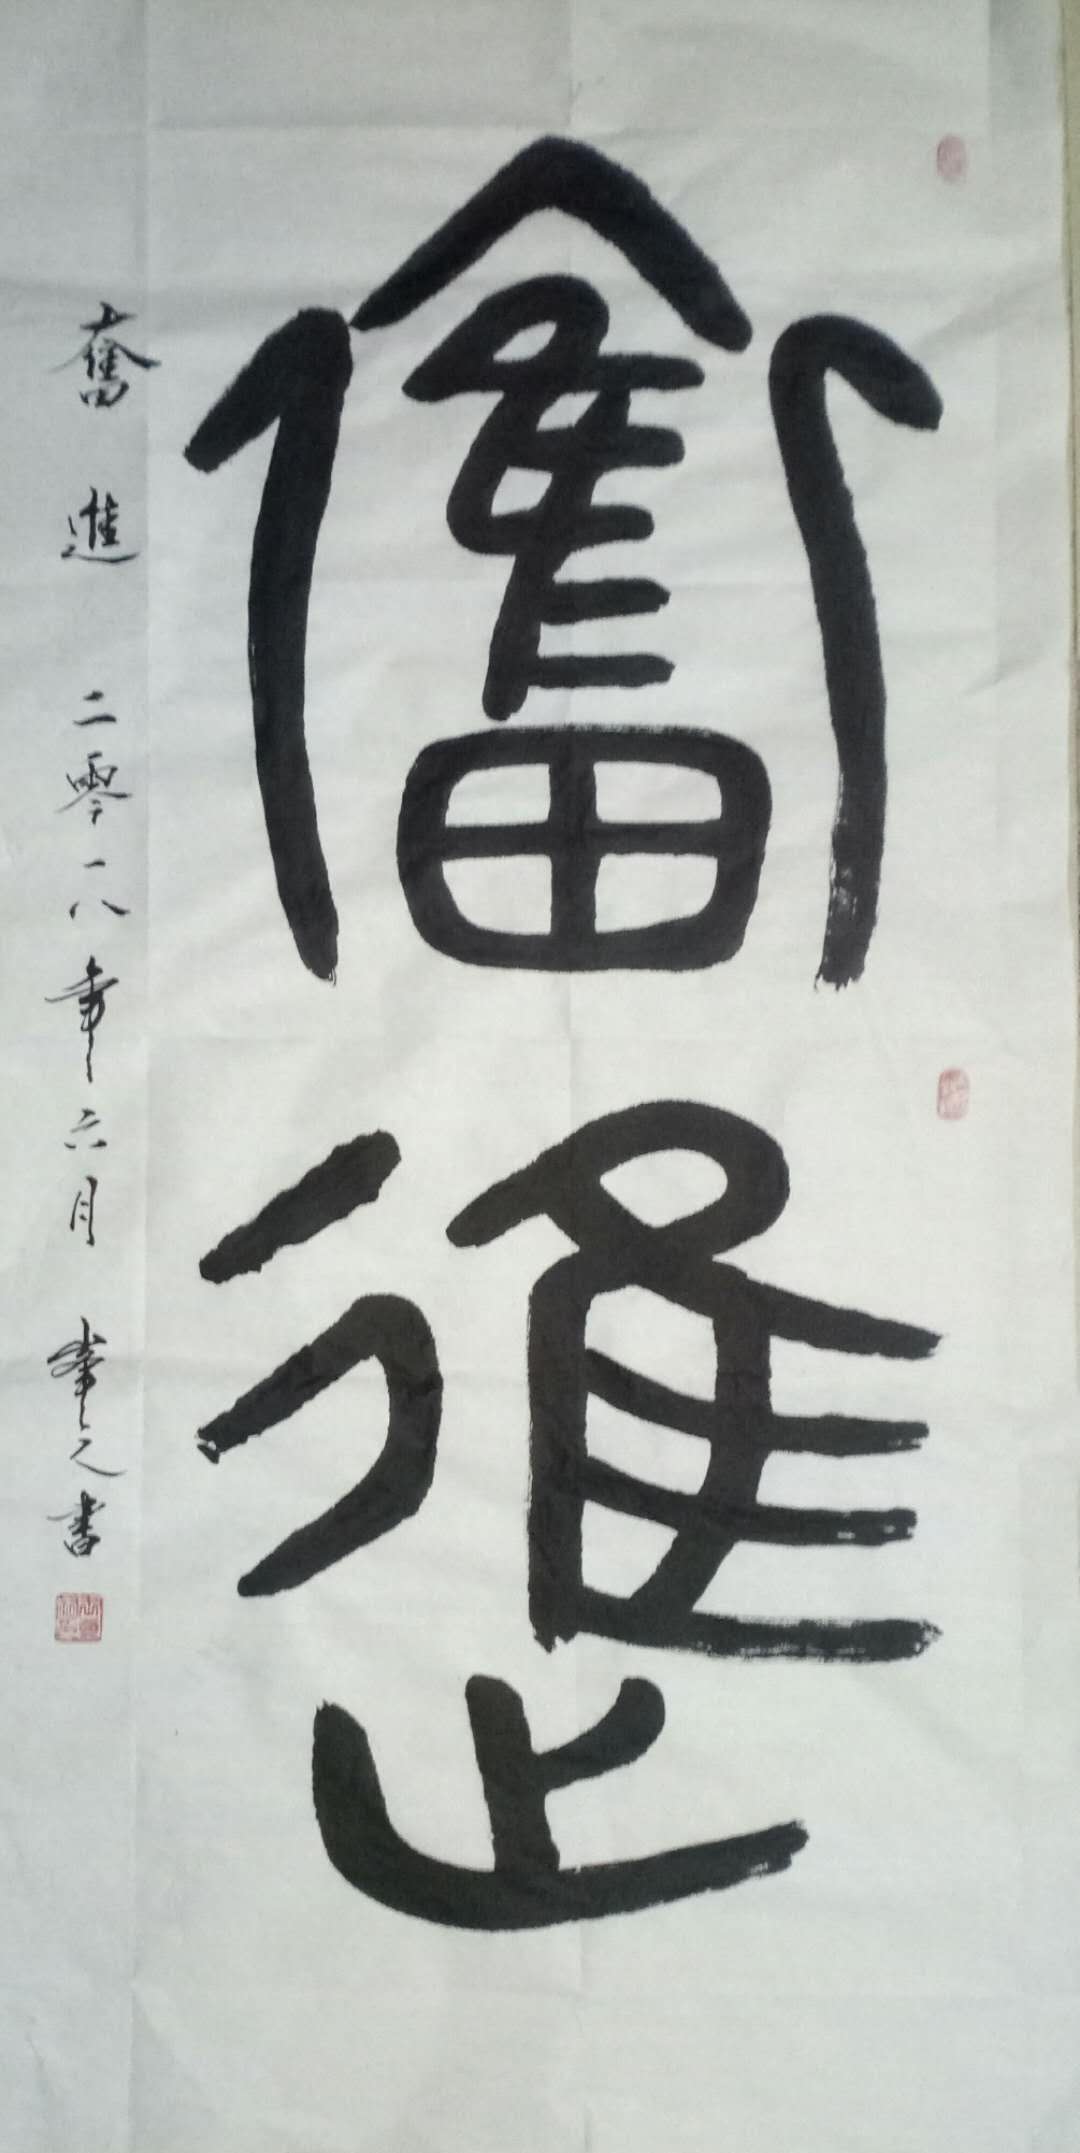 奮進
奮進 二零一八年六月 峯之書